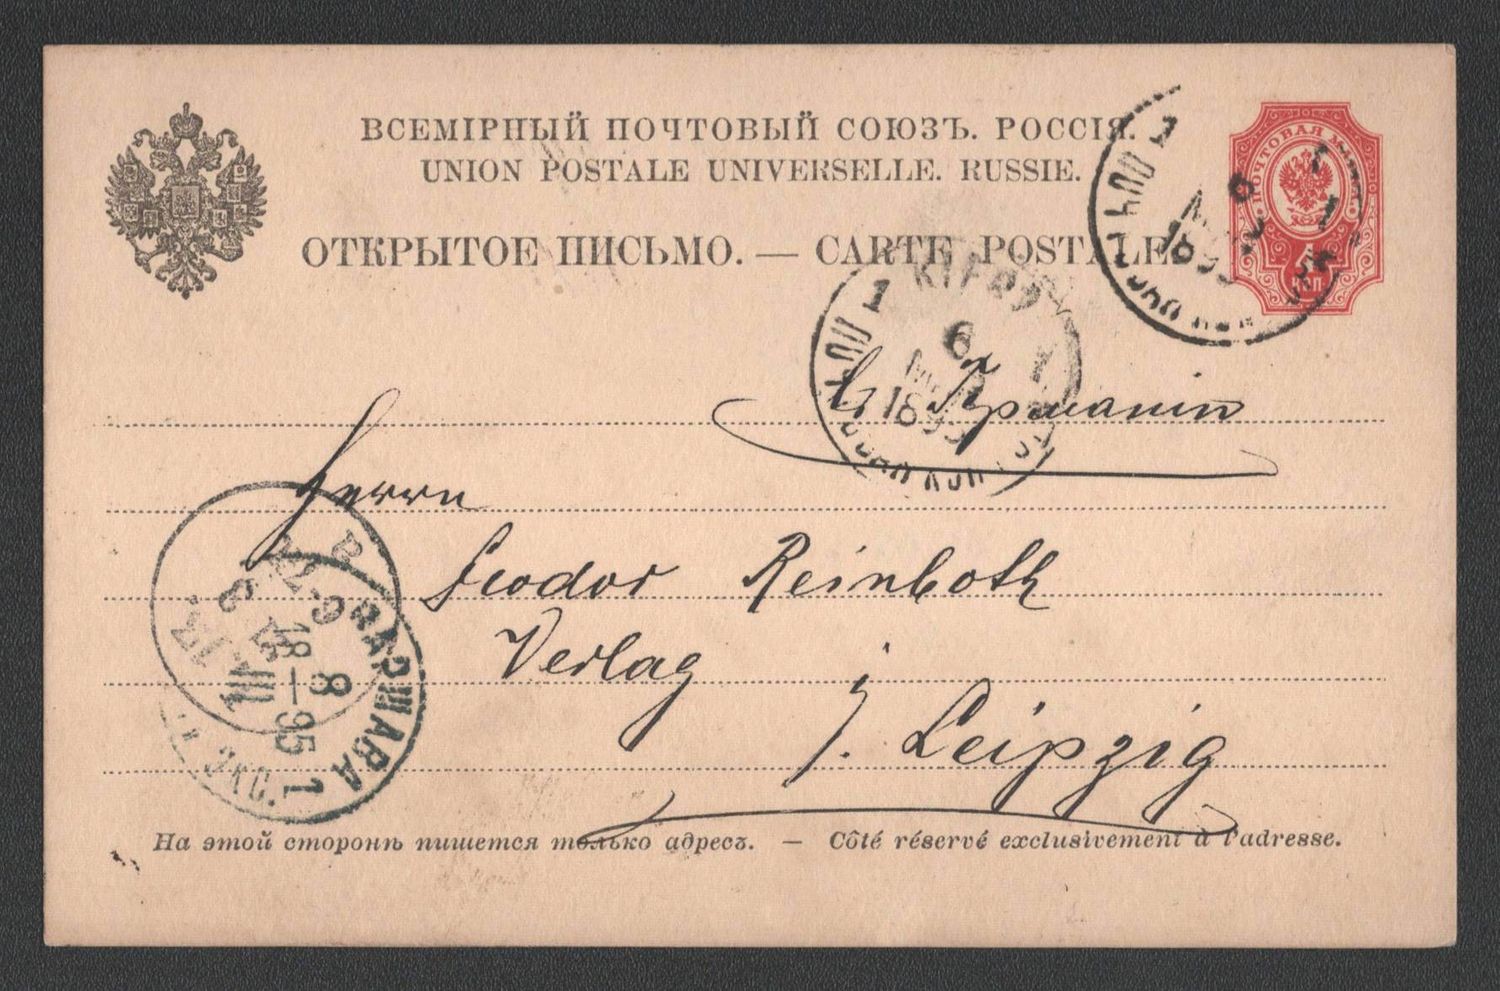 ВСЕМІРНЫЙ ПОЧТОВЫЙ СОЮЗЪ. РОССІЯ.
UNION POSTALE UNIVERSELLE. RUSSIE.
ОТКРЫТОЕ ПИСЬМО. — CARTE POSTALE.
ПОЧТОВАЯ
4
КОП
1
1895
КІЕВЪ
1
6
1895
Германія
Herrn
Feodor Reinboth
Verlag
j. Leipzig
ВАРШАВА 1
8
18—95
III
На этой сторонѣ пишется только адресъ. — Côté réservé exclusivement à l'adresse.